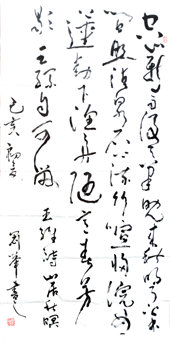 空山新雨後天氣晚來秋明月松
間照清泉石上流竹喧歸浣女
蓮動下漁舟隨意春芳
歇王孫自可留
王維詩山居秋暝
己亥初
劉書